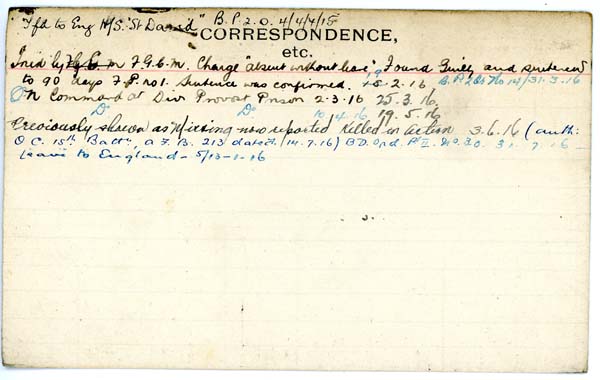 Tfd to Eng H/S. "St David" B.P. 2.0. 4/4/4/15
CORRESPONDENCE,
etc.
Tried by F.G.C.M. Charge "absent without leave", Found Guilty and sentenced
to 90 days F.P. no 1. Sentence was confirmed. 2.16 31.3.16
On Command at Div Provost Prison 2-3-16 25.3.16
Do Do 10.4.16 19.5.16
Previously shown as Missing now reported Killed in Action 3.6.16 (auth:
O.C. 15th Battn, A.F.B. 213 dated 14.7.16) B.D. Ord. Pt II. No. 30. 31.7.16
Leave to England - 5/13-1-16